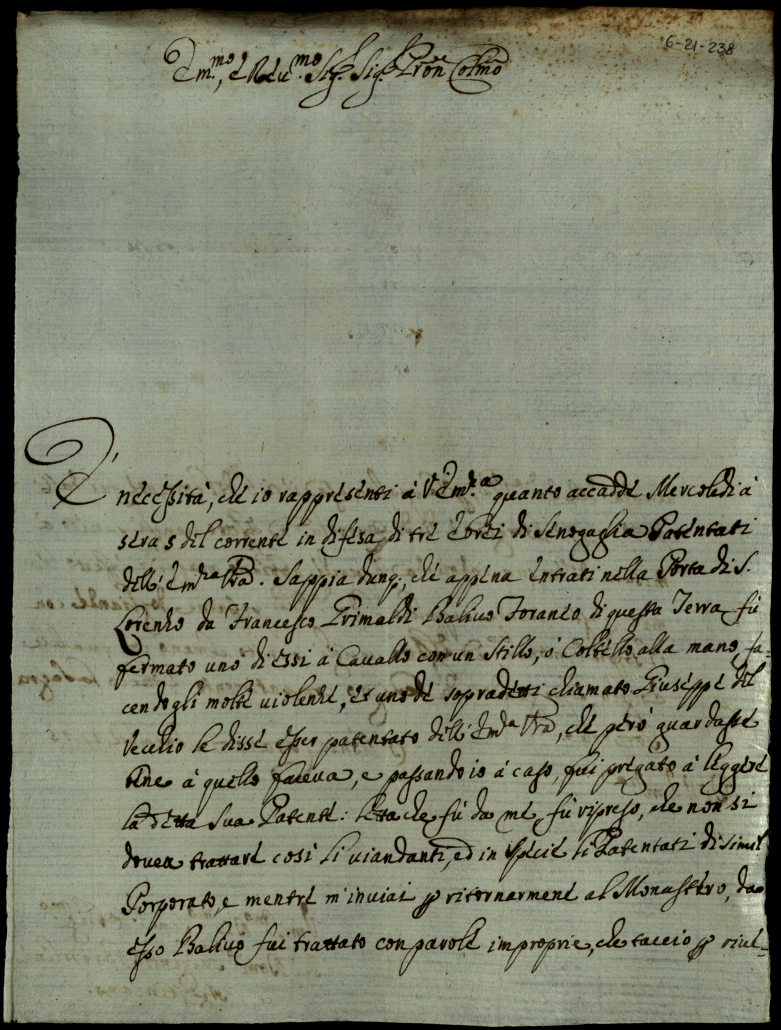 6-21-238
Em.mo, e Reu.mo Sig.r Sig.r Pron Colmo
É necessità, che io rappresenti à V Em.a quanto accadde Mercoledi à
sera 5 del corrente in difesa di trè Ebrei di Senegaglia Patentati
dell' Em.za Vra. Sappia dunq; che appena entrati nella Porta di S.
Lorenzo da Francesco Grimaldi Baliuo Foraneo di questa Terra fù
fermato uno di essi à Cauallo con un Stillo, ò Coltello alla mano, fa=
cendogli molte uiolenze, et uno de sopradetti chiamato Giuseppe del
Vecchio le disse esser patentato dell' Em.a Vra, che però guardasse
bene à quello faceua, e passando io à caso, fui pregato à leggere
la detta sua Patente: letta che fù da me, fù ripreso, che non si
doueua trattare cosi li uiandanti, ed in specie li Patentati di simil
Porporato, e mentre m'inuiai p ritornarmene al Monastero, da
esso Baliuo fui trattato con parole improprie, che taccio p riue=